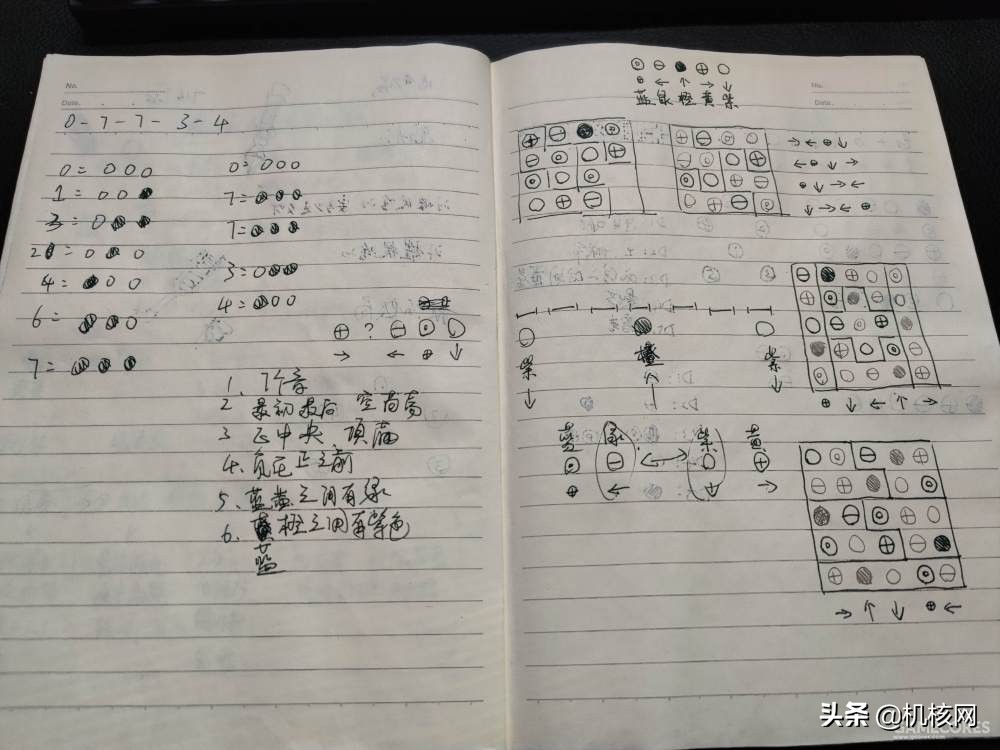 No.
Date.
0-7-7-3-4
0=000
1=00●
3=0●●
2=0●0
4=●00
6=●●0
7=●●●
0=000
7=●●●
7=●●●
3=0●●
4=●00
⊕ ? ⊖ ⊙ ○
→ ← ⊕ ↓
1、7个音
2 最初最后 空荡荡
3 正中央 顶满
4、负在正之前
5、蓝黄之间有绿
6、蓝橙之间有紫色
No.
Date.
⊙ ⊖ ● ⊕ ○
⊕ ← ↑ → ↓
蓝 绿 橙 黄 紫
⊕ ⊖ ● ⊙
⊖ ⊙ ○ ⊕
⊙ ○ ⊙
○ ⊕ ⊖
⊕ ⊖ ⊙ ○
⊖ ⊙ ○ ⊕
⊙ ○ ⊕ ⊖
○ ⊕ ⊖ ⊙
→ ← ⊕ ↓
← ⊕ ↓ →
⊕ ↓ → ←
↓ → ← ⊕
⊖ ● ○
紫 橙 紫
↓ ↑ ↓
⊖ ● ⊕ ○ ⊙
⊕ ⊙ ● ⊖ ○
○ ⊖ ⊙ ⊕ ●
● ⊕ ○ ⊙ ⊖
⊙ ○ ⊖ ● ⊕
⊕ ↓ ← ↑ →
蓝 绿 紫 黄
⊙ ⊖ ↔ ○ ⊕
⊕ ← ↓ →
○ ⊙ ⊖ ● ⊕
⊖ ⊕ ● ○ ⊙
● ⊖ ⊙ ⊕ ○
⊙ ○ ⊕ ⊖ ●
⊕ ● ○ ⊙ ⊖
→ ↑ ↓ ⊕ ←
头条 @机核网
GAMECORES